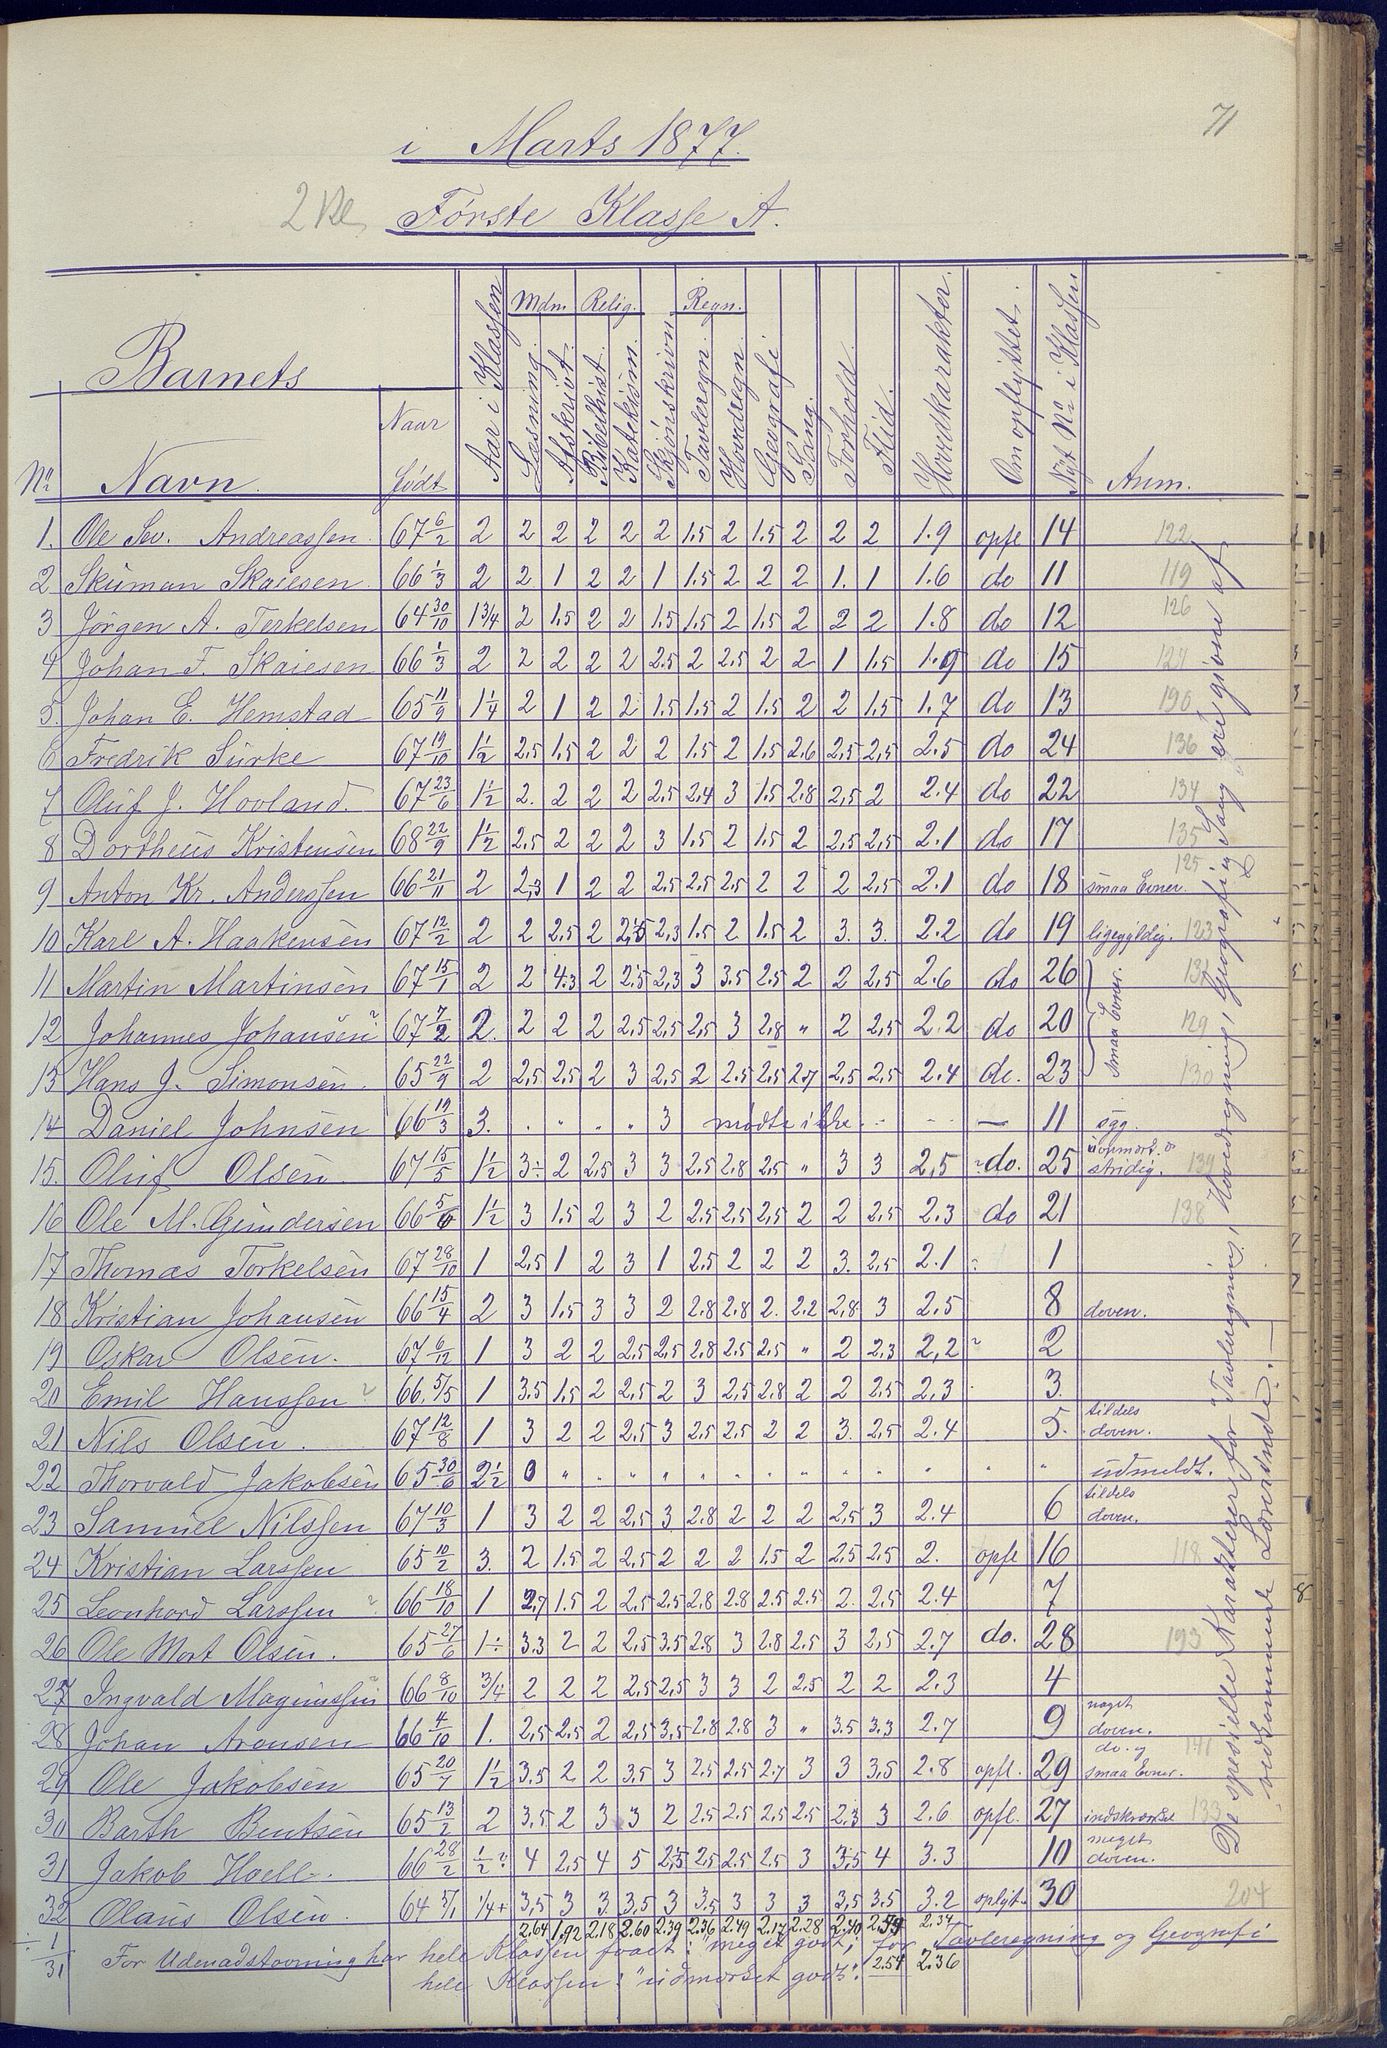 71
i Marts 1877.
2 Kl. Første Klasse A.
Mdm. Relig. Regn.
Barnets
No Navn. Naar født Aar i Klassen Læsning. Afskrivt. Bibelhist. Katekism. Skjönskrivn Tavleregn. Hovdregn. Geografi Sang. Forhold. Flid. Hovedkarakter. Om opflyttet. Nyt No i Klassen Anm.
1. Ole Sev. Andreassen. 67 6/2 2 2 2 2 2 2 1.5 2 1.5 2 2 2 1.9 opfl 14 122
2 Skuman Skaiesen 66 1/3 2 2 1 2 2 1 1.5 2 2 2 1. 1 1.6 do 11 119
3 Jørgen A. Terkelsen 64 30/10 1 3/4 2 1.5 2 2 1.5 1.5 2 1.5 2 2 2 1.8 do 12 126
4 Johan F. Skaiesen 66 1/3 2 2 2 2 2 2.5 2 2.5 2 2 1 1.5 1.9 do 15 127
5. Johan E. Hemstad 65 11/9 1 1/4 2 1 2 2 1.5 1.5 2 1.5 2 2 1.5 1.7 do 13 190
6 Fredrik Surke 67 19/10 1 1/2 2.5 1.5 2 2 2 1.5 2 1.5 2.6 2.5 2.5 2.5 do 24 136
7 Oluf J. Hovland. 67 23/6 1 1/2 2. 2 2 2 2.5 2.4 3 1.5 2.8 2.5 2 2.4 do 22 134
8 Dortheus Kristensen 68 22/9 1 1/2 2.5 2 2 2 3 1.5 2 1.5 2 2.5 2.5 2.1 do 17 135
9 Anton Kr. Anderssen 66 21/11 2 2.3 1 2 2 2.5 2.5 2.5 2 2 2 2.5 2.1 do 18 smaa Evner. 125
10 Karl A. Haakensen 67 12/2 2 2 2.5 2 2.5 2.3 1.5 2 1.5 2 3. 3. 2.2 do 19 ligegyldig. 123
11 Martin Martinsen 67 15/1 2 2 4.3 2 2.5 2.3 3 3.5 2.5 2 2 2.5 2.6 do 26 131
12 Johannes Johansen ? 67 7/2 2. 2 2 2 2.5 2.5 2.5 3 2.8 " 2 2.5 2.2 do 20 Smaa Evner. 129
13 Hans J. Simonsen. 65 22/9 2 2.5 2.5 2 3 2.5 2 2.5 2.5 2.7 2.5 2.5 2.4 do. 23 130
14 Daniel Johnsen 66 19/3 3. . " " " 3 mødte ikke — 11 syg.
15. Oluf Olsen. 67 15/5 1 1/2 3÷ 2 2.5 3 3 2.5 2.8 2.5 " 3 3 2.5 do. 25 uopmærks. o stridig. 139
16 Ole M. Gundersen 66 5/6 1 1/2 3 1.5 2 3 2 2.5 2.5 2.5 2 2 2.5 2.3 do 21 138
17 Thomas Torkelsen 67 28/10 1 2.5 1 2 3 1 2.5 2 2 2 3. 2.5 2.1 1
18 Kristian Johansen 66 15/4 2 3 1.5 3 3 2 2.8 2.8 2. 2.2 2.8 3 2.5 8 doven.
19 Oskar Olsen. 67 6/12 1 3 2 2 2.5 2.5 2.8 2.5 2.5 " 2 2.3 2.2 ? 2
20 Emil Hanssen ? 66. 5/5 1 3.5 1.5 2 2.5 2 3 2.5 2.8 2 2 2.5 2.3 3.
21 Nils Olsen. 67 12/8 1 3 2 2 2.5 3 2.5 2.5 2 2 3. 2.5 2.4 5. tildels doven.
22 Thorvald Jakobsen 65 30/6 2 1/2 0 " " " " " " " " " " " " " udmeldt.
23 Samuel Nilssen 67 10/3 1 3 2 2 2.5 3 2.8 2 2 2 2.5 3 2.4 6 tildels doven.
24 Kristian Larssen 65 10/2 3. 2 1.5 2 2.5 2 2 2 1.5 2 2.5 2.5 2. opfl 16 118
25 Leonhard Larssen ? 66 18/10 1 2.7 1.5 2 2.5 2.5 2.8 2.8 2.5 2.5 2. 2.5 2.4 7
26 Ole Mort Olsen. 65 27/6 1÷ 3.3 2 2 2.5 3.5 2.8 3 2.8 2.5 3 2.5 2.7 do. 28 193
27 Ingvald Magnussen ? 66 8/10 3/4 2 2 2 2.5 2.5 3 3 2 2.5 2 2 2.3 4
28 Johan Aronsen 66 4/10 1. 2.5 2.5 2 2.5 3.5 2.8 2.8 3 " 3.5 3.3 2.7 9 noget doven.
29 Ole Jakobsen 65 20/7 1 1/2 3.5 2 2 3.5 3 2.5 2.5 2.7 3 3 3.5 2.8 opfl. 29 do. og smaa Evner. 141
30 Barth Bentsen 65 13/2 2 3.5 2 3 3 2 2.5 2.5 2.5 2.5 2.3 3 2.6 opfl. 27 indskrænket 133
31 Jakob Hoell. 66 28/2 1/2 ? 4 2.5 4 5 2.5 2.5 2.5 2.5 3 3.5 4 3.3 10 meget doven.
32 Olaus Olsen. 64 5/1 1/4+ 3.5 3 3. 3.5 3 3.5 3 3 3 3.5 3.5 3.2 oplyt. 30 204
2.64 1.92 2.18 2.60 2.39 2.36 2.49 2.17 2.28 2.40 2.59 2.34
÷ 1/31 For Udenadstavning har hele Klassen faaet: "meget godt", for Tavleregning og Geografi
hele Klassen: "udmærket godt". 2.54 2.36
De spesielle Karakterer for Tavleregning, Hovdregning, Geografi og Sang ere givne af
vedkommende Lærerinde. —